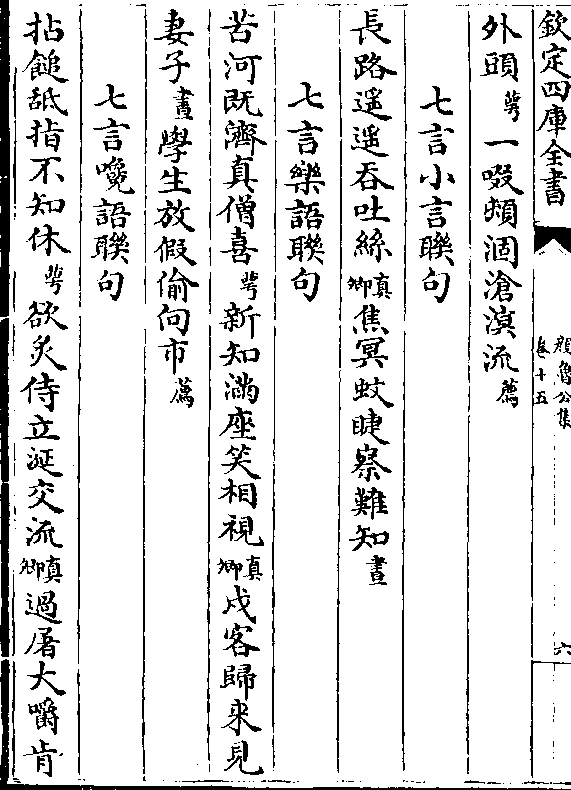 欽定四庫全書
顔魯公集
卷十五
六
外頭萼一啜頻涸滄溟流薦
七言小言聯句
長路遥遥吞吐絲真卿焦冥蚊睫察難知晝
七言樂語聯句
苦河既濟真僧喜萼新知滿座笑相視真卿戍客歸來見
妻子晝學生放假偷向市薦
七言嚵語聯句
拈䭔舐指不知休萼欲炙侍立涎交流真卿過屠大嚼肯